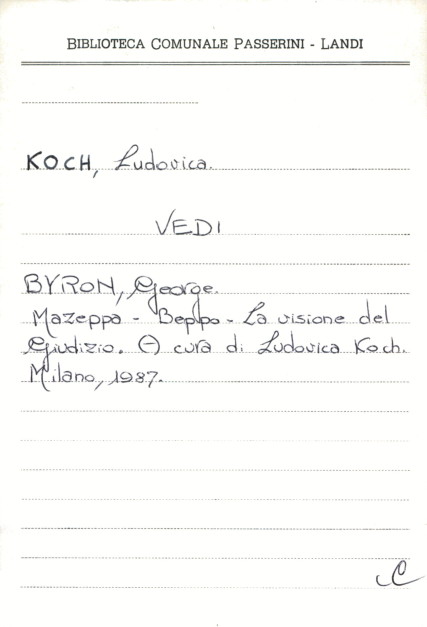 BIBLIOTECA COMUNALE PASSERINI - LANDI
KOCH, Ludovica.
VEDI
BYRON, George.
Mazeppa - Beppo - La visione del
Giudizio. A cura di Ludovica Koch.
Milano, 1987.
C